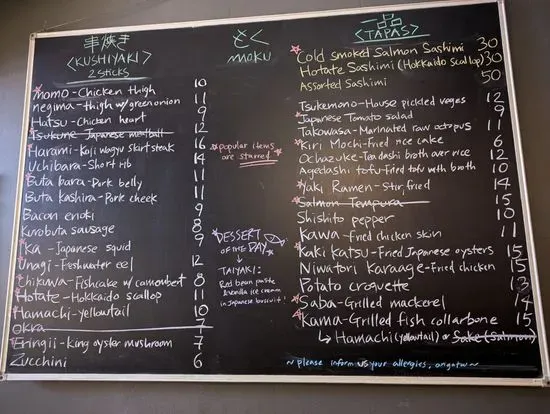 串焼き
<KUSHIYAKI>
2 sticks
Momo - Chicken thigh 10
negima - thigh w/ green onion 11
Hatsu - Chicken heart 9
Tsukune Japanese meatball 12
Harami - Koji wagyu skirt steak 16
Uchibara - Short rib 14
Buta bara - Pork belly 11
Buta kashira - Pork cheek 11
Bacon enoki 9
Kurobuta sausage 8
Ika - Japanese squid 9
Unagi - Freshwater eel 12
Chikuwa - Fishcake w/ camembert 8
Hotate - Hokkaido scallop 11
Hamachi - yellowtail 10
Okra 7
Eringii - King oyster mushroom 7
Zucchini 6
もく
MOKU
*popular items
are starred
DESSERT
OF THE DAY
↳ TAIYAKI:
Red bean paste
& vanilla ice cream
in Japanese biscuit!
一品
<TAPAS>
Cold smoked Salmon Sashimi 30
Hotate Sashimi (Hokkaido scallop) 30
Assorted Sashimi 50
Tsukemono - House pickled veges 12
Japanese Tomato salad 9
Takowasa - Marinated raw octopus 11
Kiri Mochi - Fried rice cake 6
Ochazuke - Tea dashi broth over rice 12
Agedashi tofu - Fried tofu with broth 10
Yaki Ramen - Stir fried 14
Salmon Tempura 15
Shishito pepper 10
Kawa - Fried chicken skin 11
Kaki Katsu - Fried Japanese oysters 15
Niwatori Karaage - Fried chicken 15
Potato croquette 13
Saba - Grilled mackerel 14
Kama - Grilled fish collarbone 15
↳ Hamachi (yellowtail) or Sake (Salmon)
~ please inform us your allergies, arigato ~